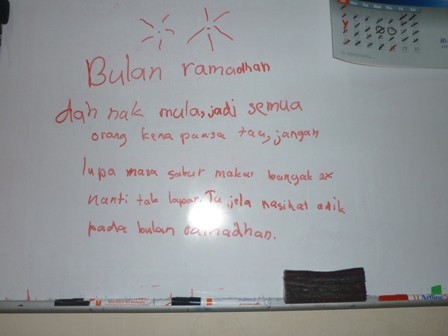 Bulan ramadhan
dah nak mula, jadi semua
orang kena puasa tau, jangan
lupa masa sahur makan banyak 2x
nanti tak lapar. Tu jela nasihat adik
pada bulan ramadhan.